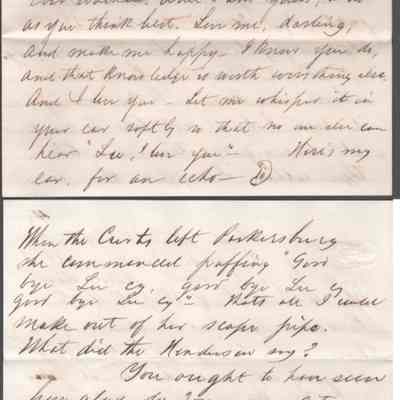 as you think best. Love me, darling,
and make me happy. I know you do,
and that knowledge is worth everything else.
And I love you - Let me whisper it in
your ear softly so that no one else can
hear "Lu, I love you" - Here's my
ear, for an echo -
When the Curtis left Parkersburg
she commenced puffing "Good
bye Lu cy, good bye Lu cy
good bye Lu cy" - Thats all I could
make out of her scape pipe.
What did the Henderson say?
You ought to have seen